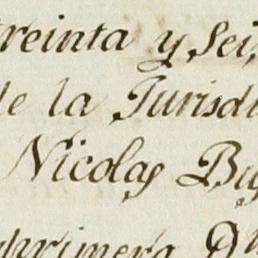 treinta y Sei
de la Jurisdi
Nicolas Bu
primera